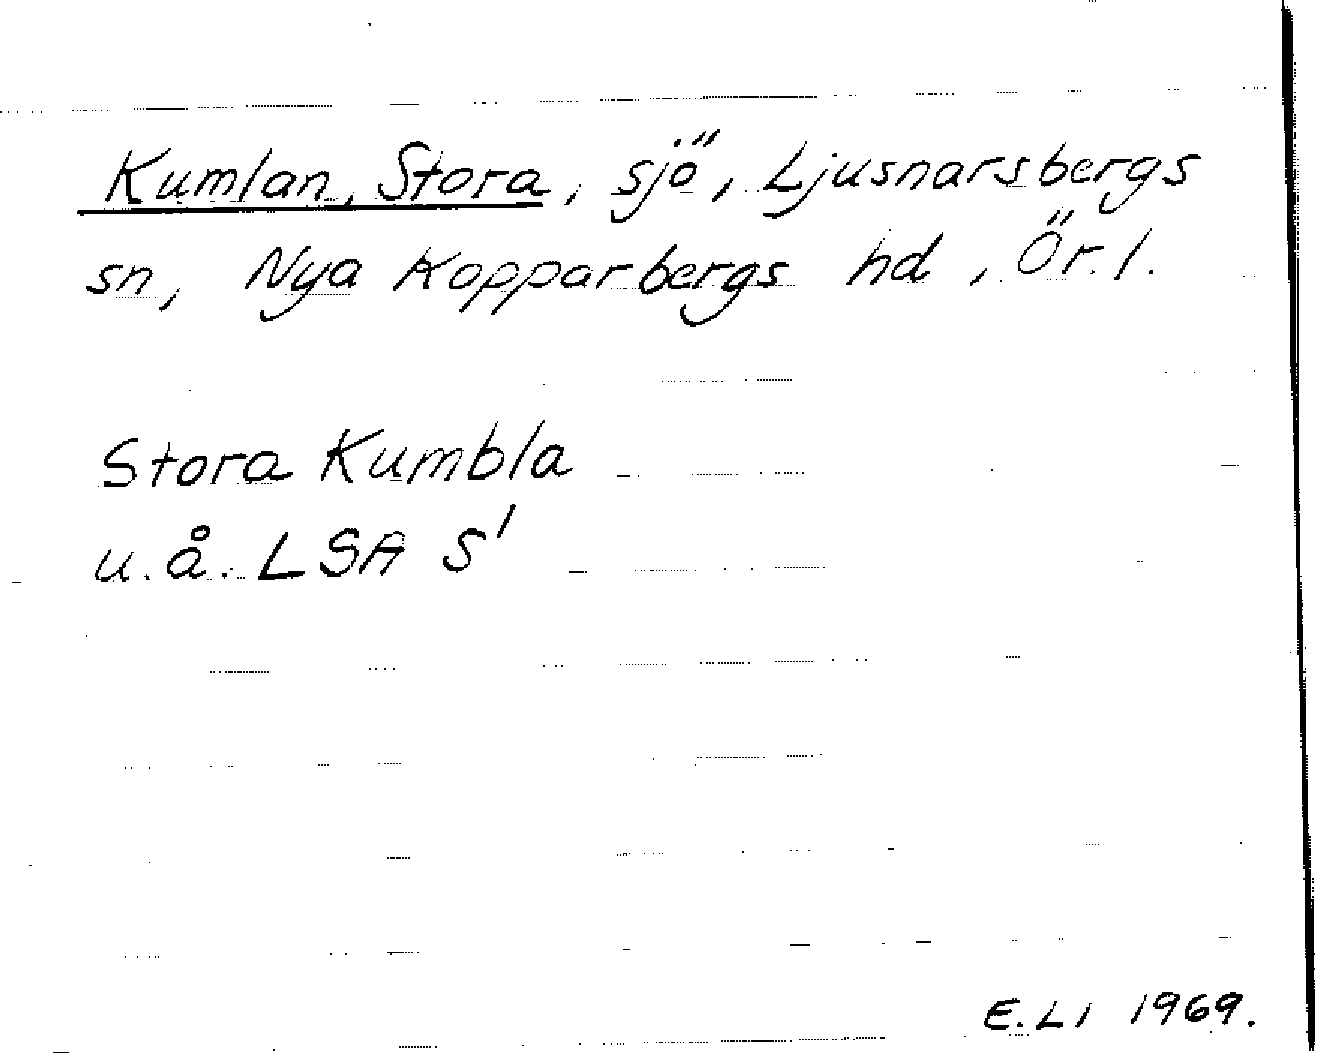 Kumlan, Stora, sjö, Ljusnarsbergs
sn, Nya Kopparbergs hd, Ör. l.
Stora Kumbla
u. å. LSA S'
E. LI 1969.